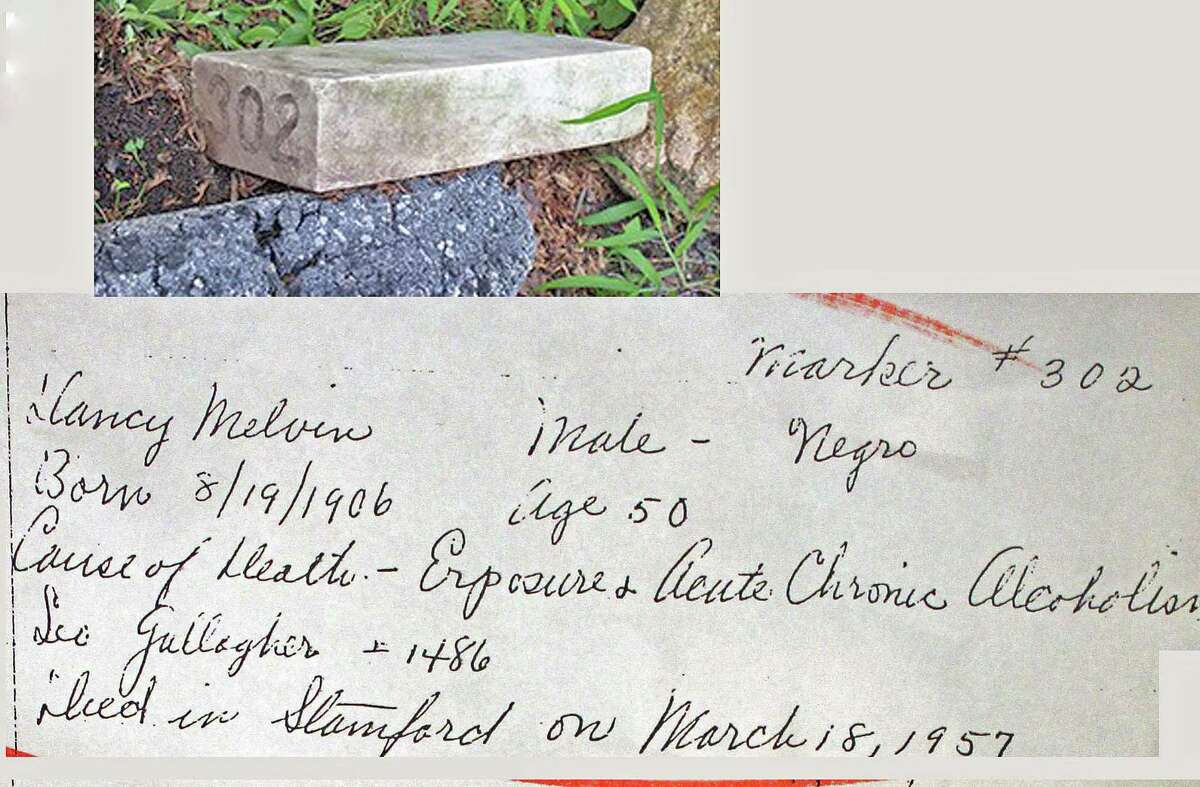 302
Marker # 302
Dancy Melvin Male - Negro
Born 8/19/1906 Age 50
Cause of Death - Exposure & Acute Chronic Alcoholism
Leo Gallagher = 1486
Died in Stamford on March 18, 1957